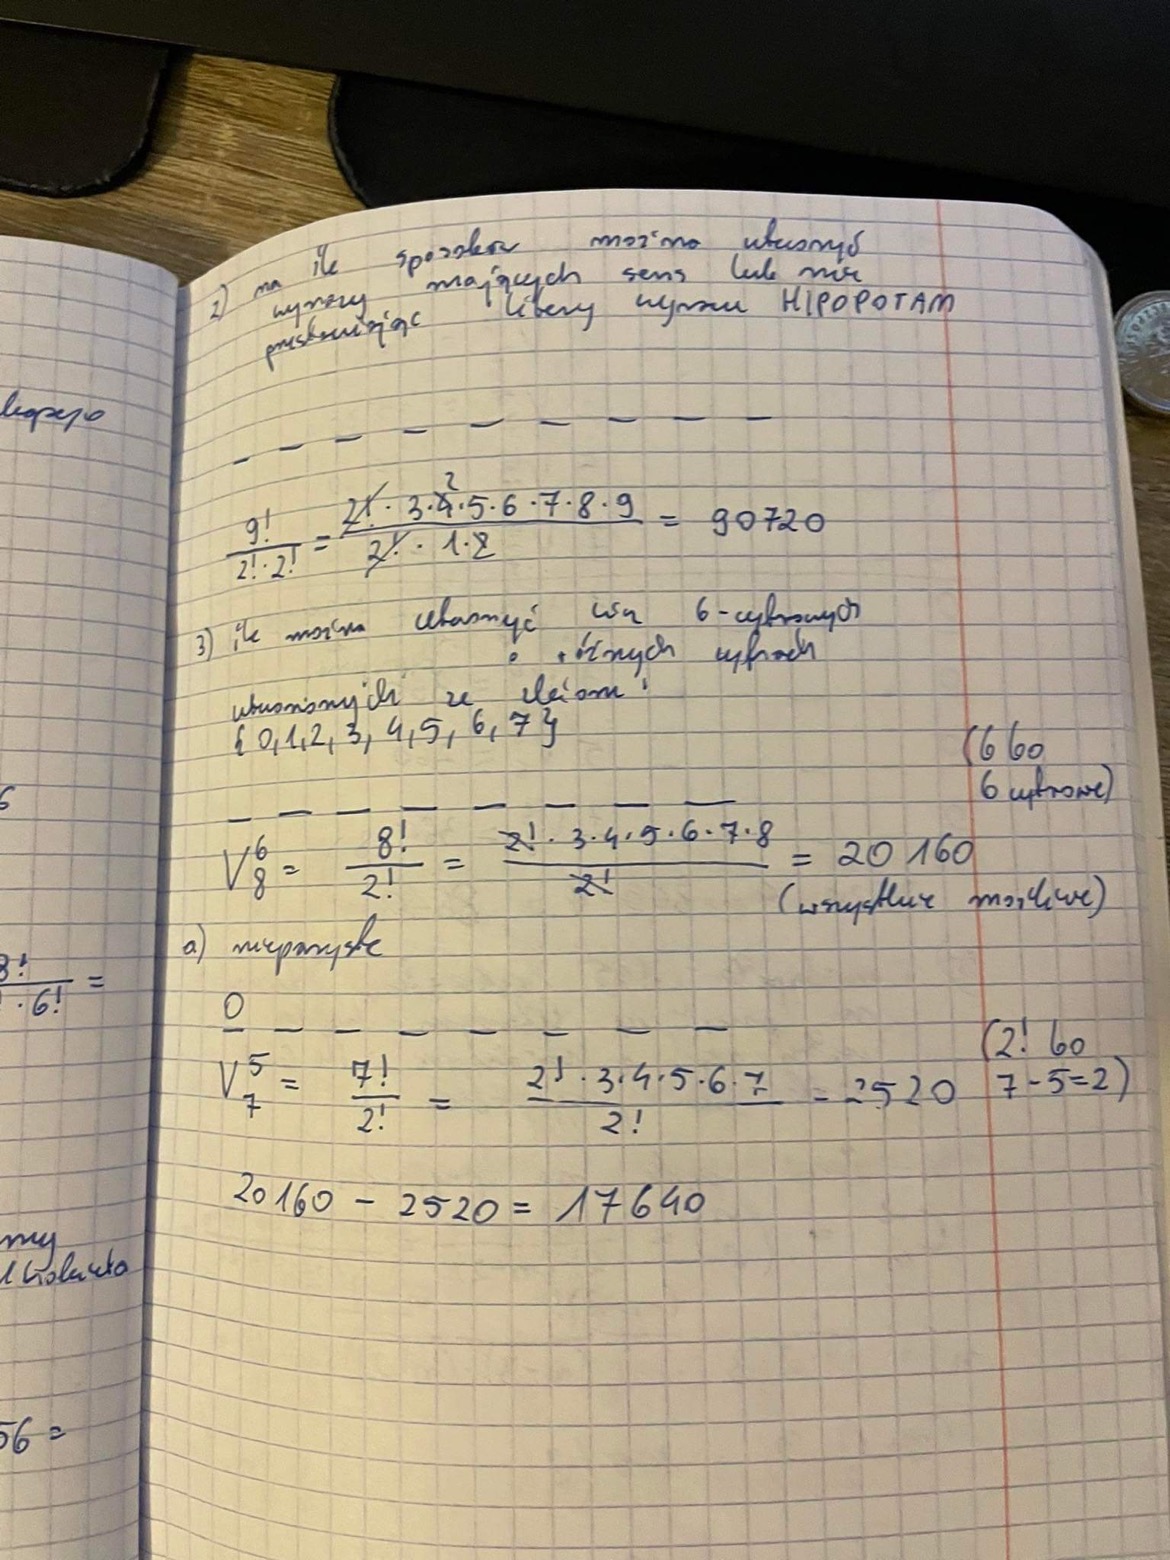 2) na ile sposobów można utworzyć
wyrazy mających sens lub nie
przestawiając litery wyrazu HIPOPOTAM
9!/2!·2! = 2!·3·4·5·6·7·8·9/2!·1·2 = 90720
2
3) ile można utworzyć licz 6-cyfrowych
o różnych cyfrach
utworzonych ze zbioru
{0,1,2,3,4,5,6,7}
(6 bo
6 cyfrowe)
V₈⁶ = 8!/2! = 2!·3·4·5·6·7·8/2! = 20160
(wszystkie możliwe)
a) nieparzyste
0
V₇⁵ = 7!/2! = 2!·3·4·5·6·7/2! = 2520
(2! bo
7-5=2)
20160 - 2520 = 17640
6
3!/·6! =
my
56 =